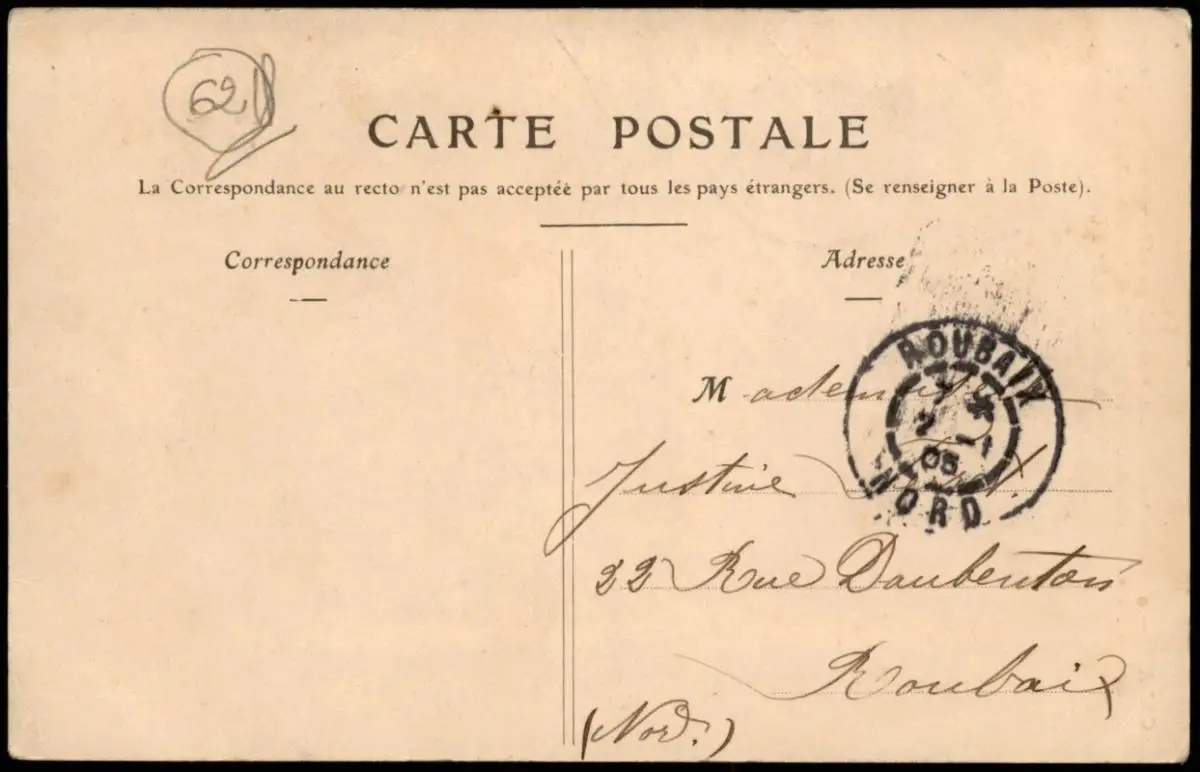 62
CARTE POSTALE
La Correspondance au recto n'est pas acceptée par tous les pays étrangers. (Se renseigner à la Poste).
Correspondance
Adresse
ROUBAIX
2
05
NORD
Mademoiselle
Justine
22 Rue Daubenton
Roubaix
(Nord.)